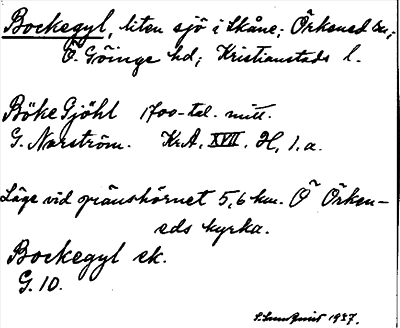 Bockegyl, liten sjö i Skåne; Örkened sn;
Ö. Göinge hd; Kristianstads l.
Böke Gjöhl 1700-tal. mitt.
G. Norström. Kr.A. XVII. H, 1.a.
Läge vid gränshörnet 5,6 km. Ö Örken-
eds kyrka.
Bockegyl ek.
G. 10.
S. Lundquist 1937.